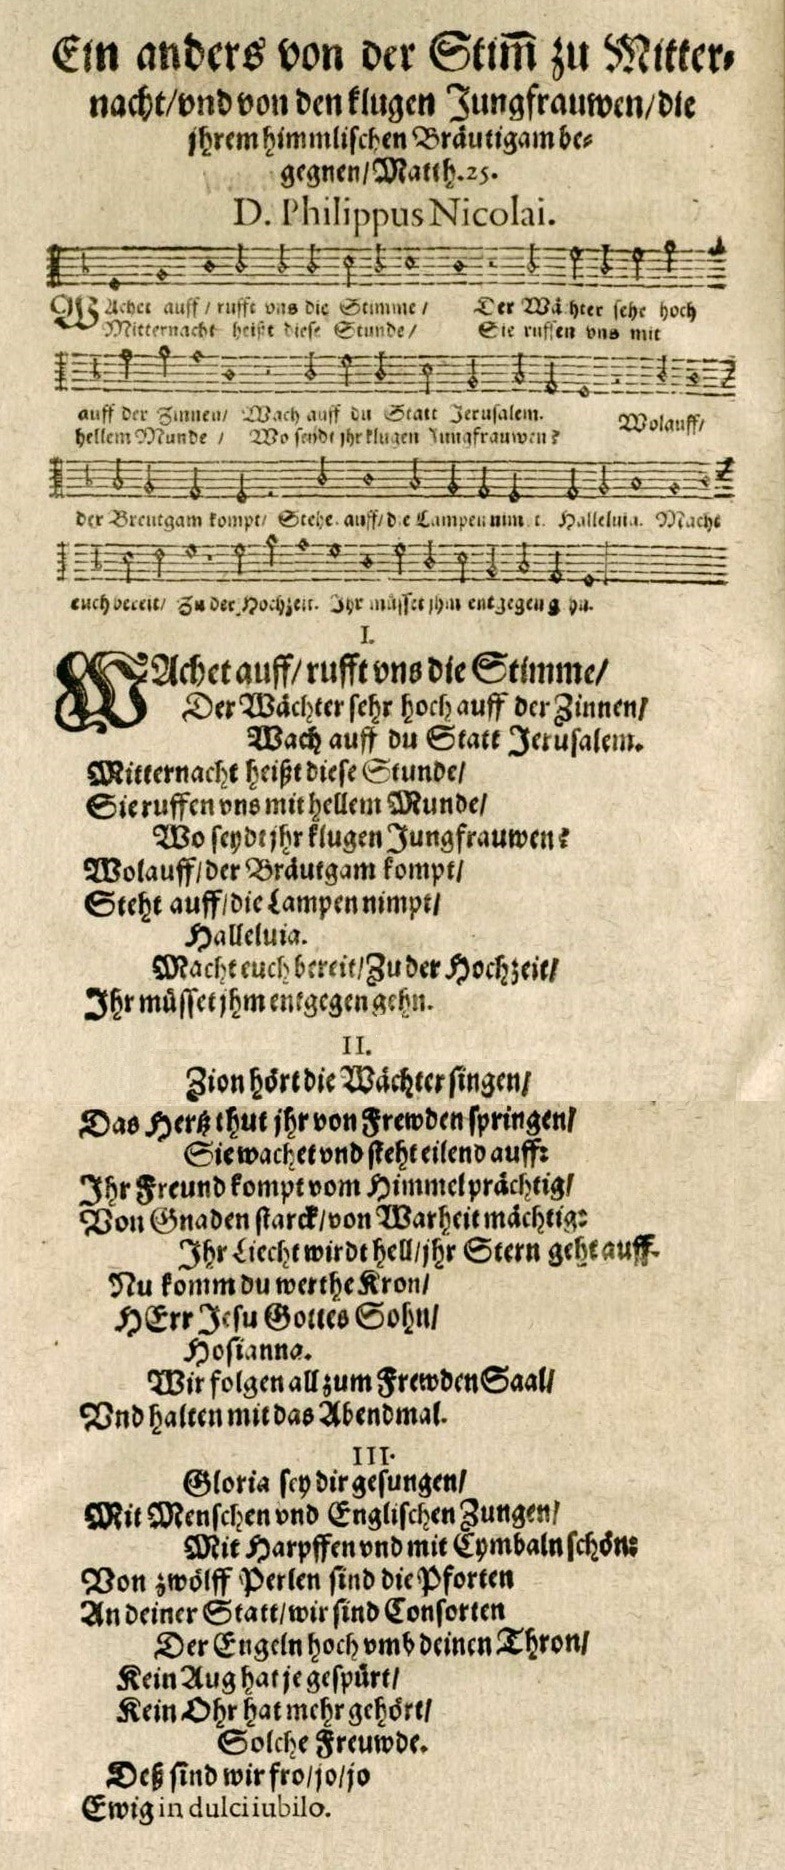 Ein anders von der Stim̅ zu Mitter-
nacht/vnd von den klugen Jungfrauwen/die
jhrem himmlischen Bräutigam be-
gegnen/Matth.25.
D. Philippus Nicolai.
WAchet auff / rufft vns die Stimme / Der Wächter sehr hoch
Mitternacht heißt diese Stunde/ Sie ruffen vns mit
auff der Zinnen/ Wach auff du Statt Jerusalem. Wolauff/
hellem Munde / Wo seydt jhr klugen Jungfrauwen?
der Breutgam kompt/ Stehe auff/die Lampen nim t. Halleluia. Macht
euch bereit/ Zu der Hochzeit. Jhr müsset jhm entgegen g hn.
I.
WAchet auff/rufft vns die Stimme/
Der Wächter sehr hoch auff der Zinnen/
Wach auff du Statt Jerusalem.
Mitternacht heißt diese Stunde/
Sie ruffen vns mit hellem Munde/
Wo seydt jhr klugen Jungfrauwen?
Wolauff/der Bräutgam kompt/
Steht auff/die Lampen nimpt/
Halleluia.
Macht euch bereit/Zu der Hochzeit/
Jhr müsset jhm entgegen gehn.
II.
Zion hört die Wächter singen/
Das Hertz thut jhr von Frewden springen/
Sie wachet vnd steht eilend auff:
Jhr Freund kompt vom Himmel prächtig/
Von Gnaden starck/von Warheit mächtig:
Jhr Liecht wirdt hell/jhr Stern geht auff.
Nu komm du werthe Kron/
HErr Jesu Gottes Sohn/
Hosianna.
Wir folgen all zum Frewden Saal/
Vnd halten mit das Abendmal.
III.
Gloria sey dir gesungen/
Mit Menschen vnd Englischen Zungen/
Mit Harpffen vnd mit Cymbaln schön:
Von zwölff Perlen sind die Pforten
An deiner Statt/wir sind Consorten
Der Engeln hoch vmb deinen Thron/
Kein Aug hat je gespürt/
Kein Ohr hat mehr gehört/
Solche Freuwde.
Deß sind wir fro/jo/jo
Ewig in dulci iubilo.